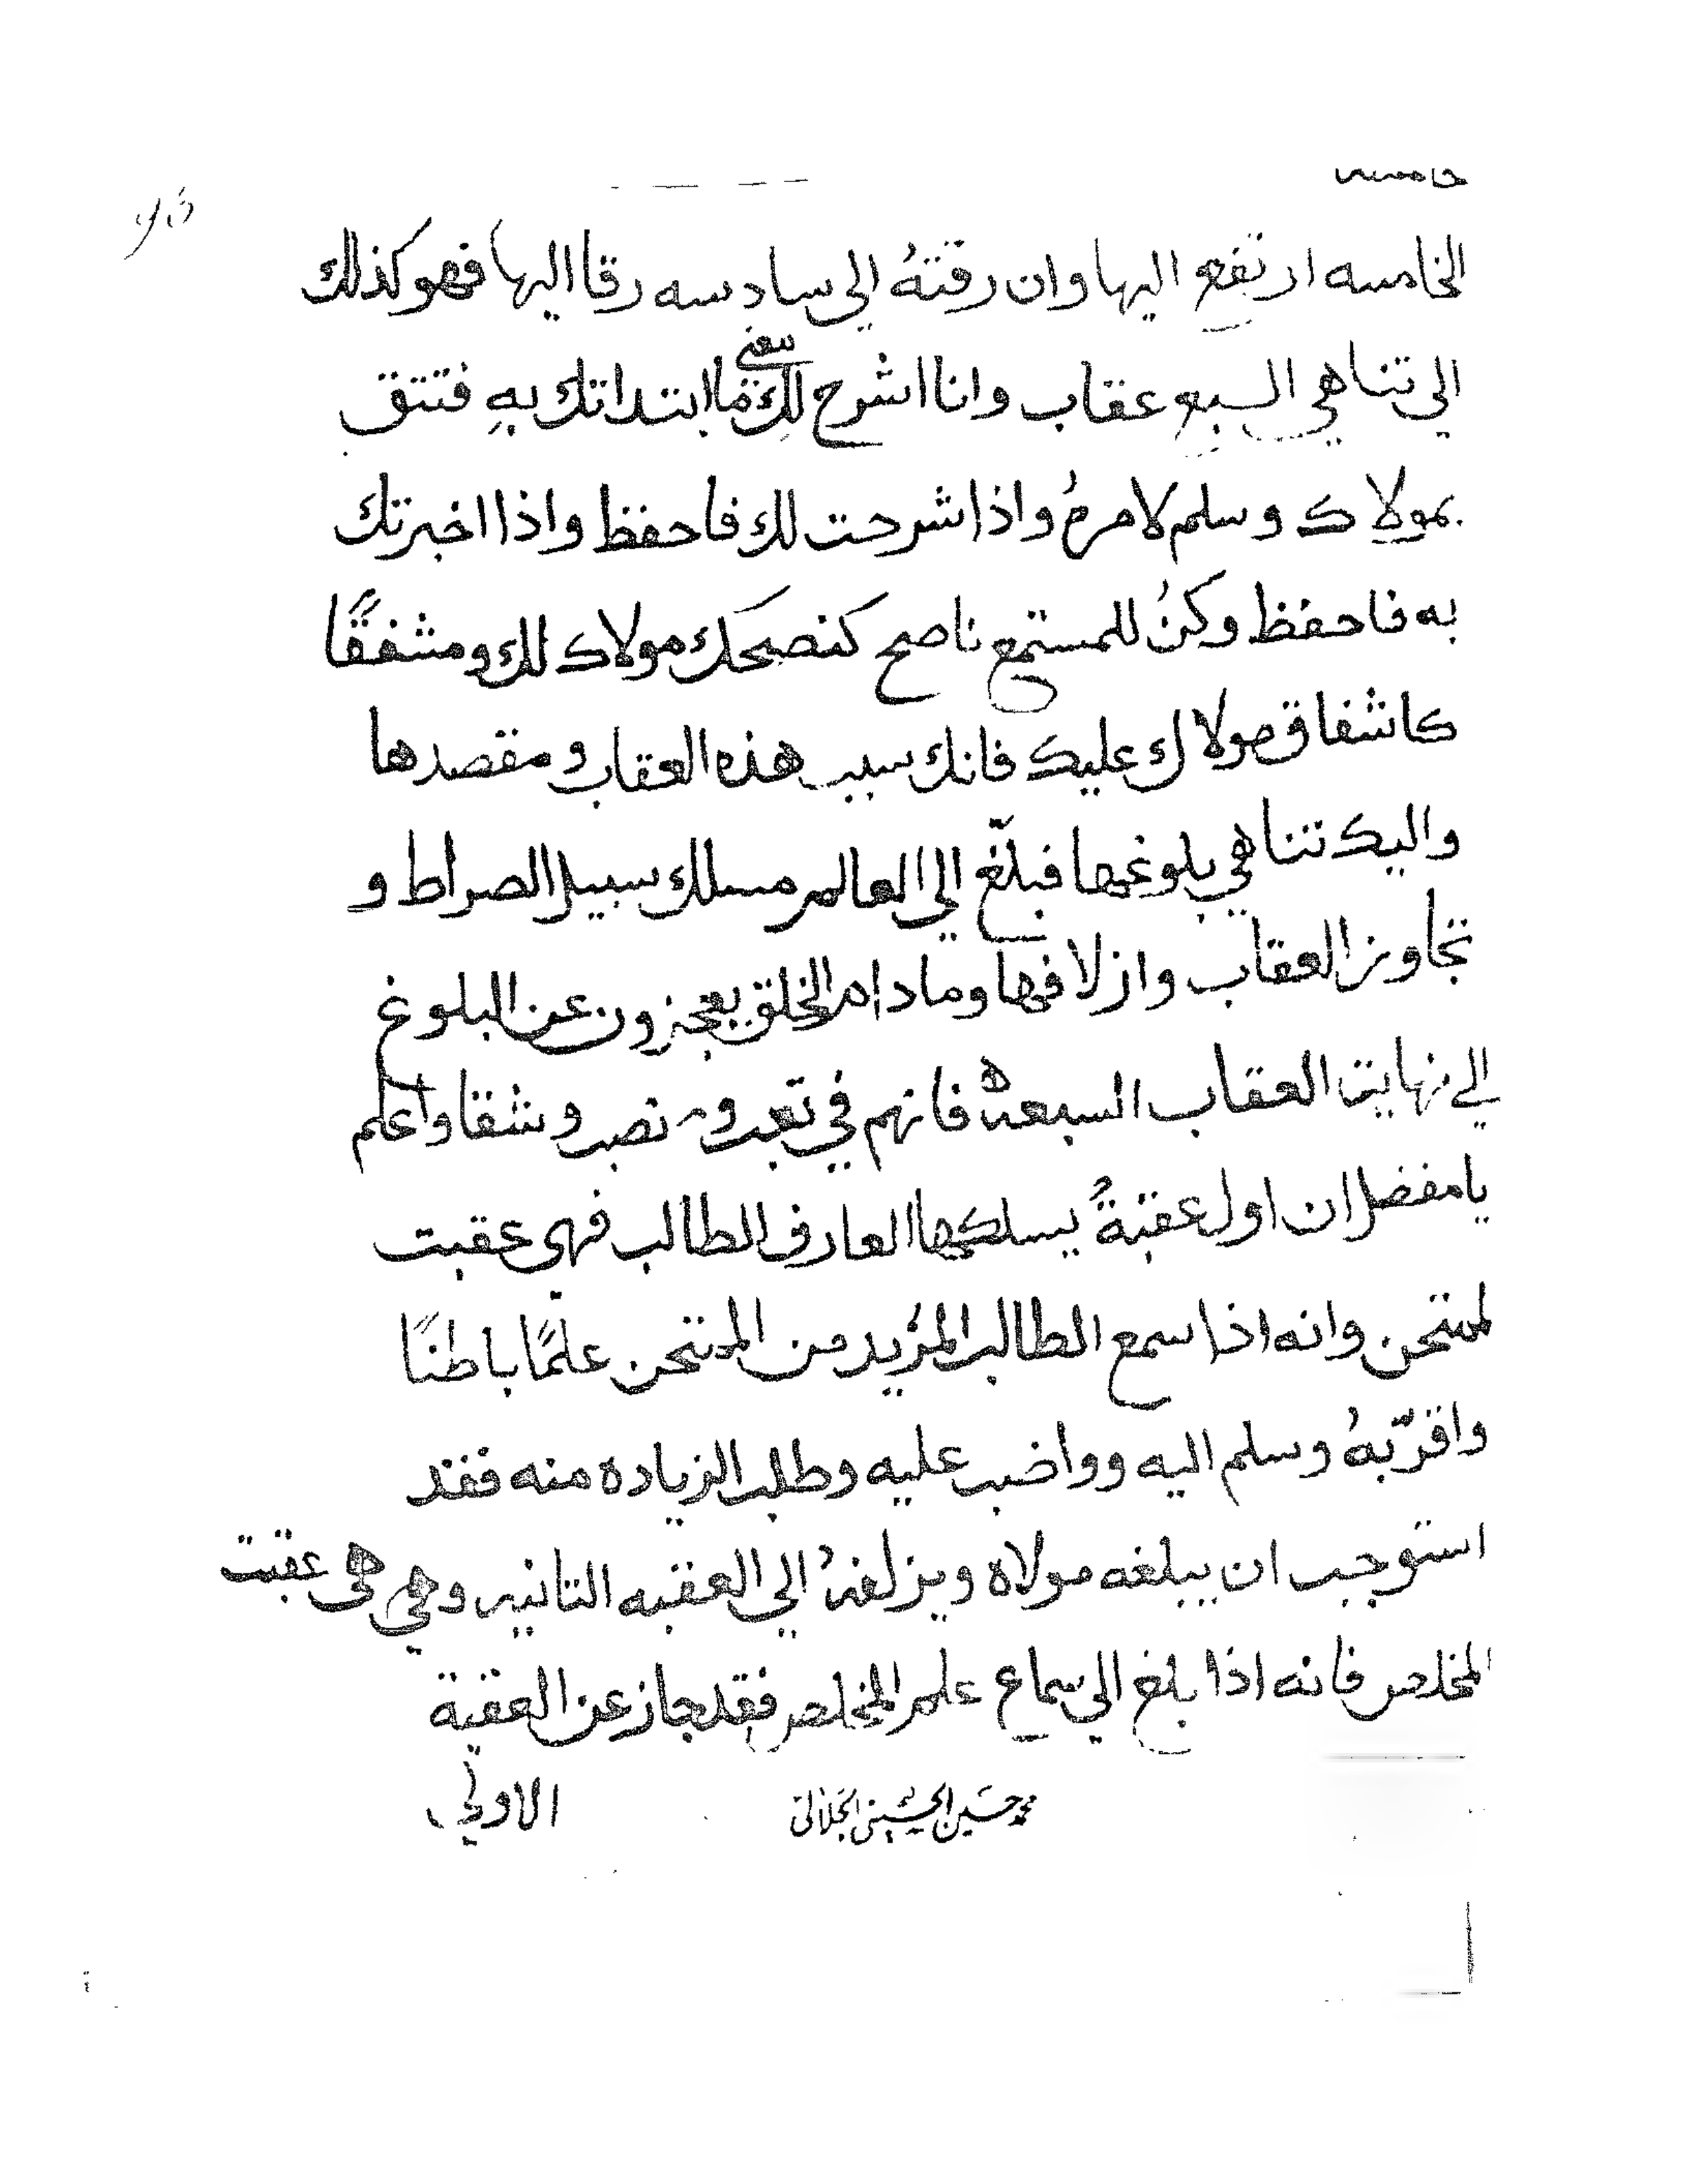 خامسه
الخامسه ارتفع اليها وان رقتهُ الي سادسه رقا اليها فهو كذلك
الي تناهي السبع عقاب وانا اشرح لك ما ابتداتك به فتتق
بمولاك وسلم لامرهُ واذا شرحت لك فاحفظ واذا اخبرتك
به فاحفظ وكنُ للمستمع ناصح كنصحك مولاك لك ومشفقًا
كاشفاق مولاك عليك فانك سبب هذه العقاب ومقصدها
واليك تتناهي بلوغها فبلّغ الي العالم مسلك سبيل الصراط و
تجاوز العقاب وازلافها وما دام الخلق يعجزون عن البلوغ
الي نهايت العقاب السبعه فانهم في تعب ونصب وشقا واعلم
يا مفضل ان اول عقبةُ يسلكها العارف الطالب فهي عقبت
لممتحن وانه اذا سمع الطالب المزيد من الممتحن علمًا باطنًا
واقرّ بهُ وسلم اليه وواضب عليه وطلب الزياده منه فقد
استوجب ان يبلغه مولاه ويزلفهُ الي العقبه التانيه وهي هي عقبت
المخلص فانه اذا بلغ الي سماع علم المخلص فقد جاز عن العقبة
الاولي
محمد حسين الحسيني الجلالي